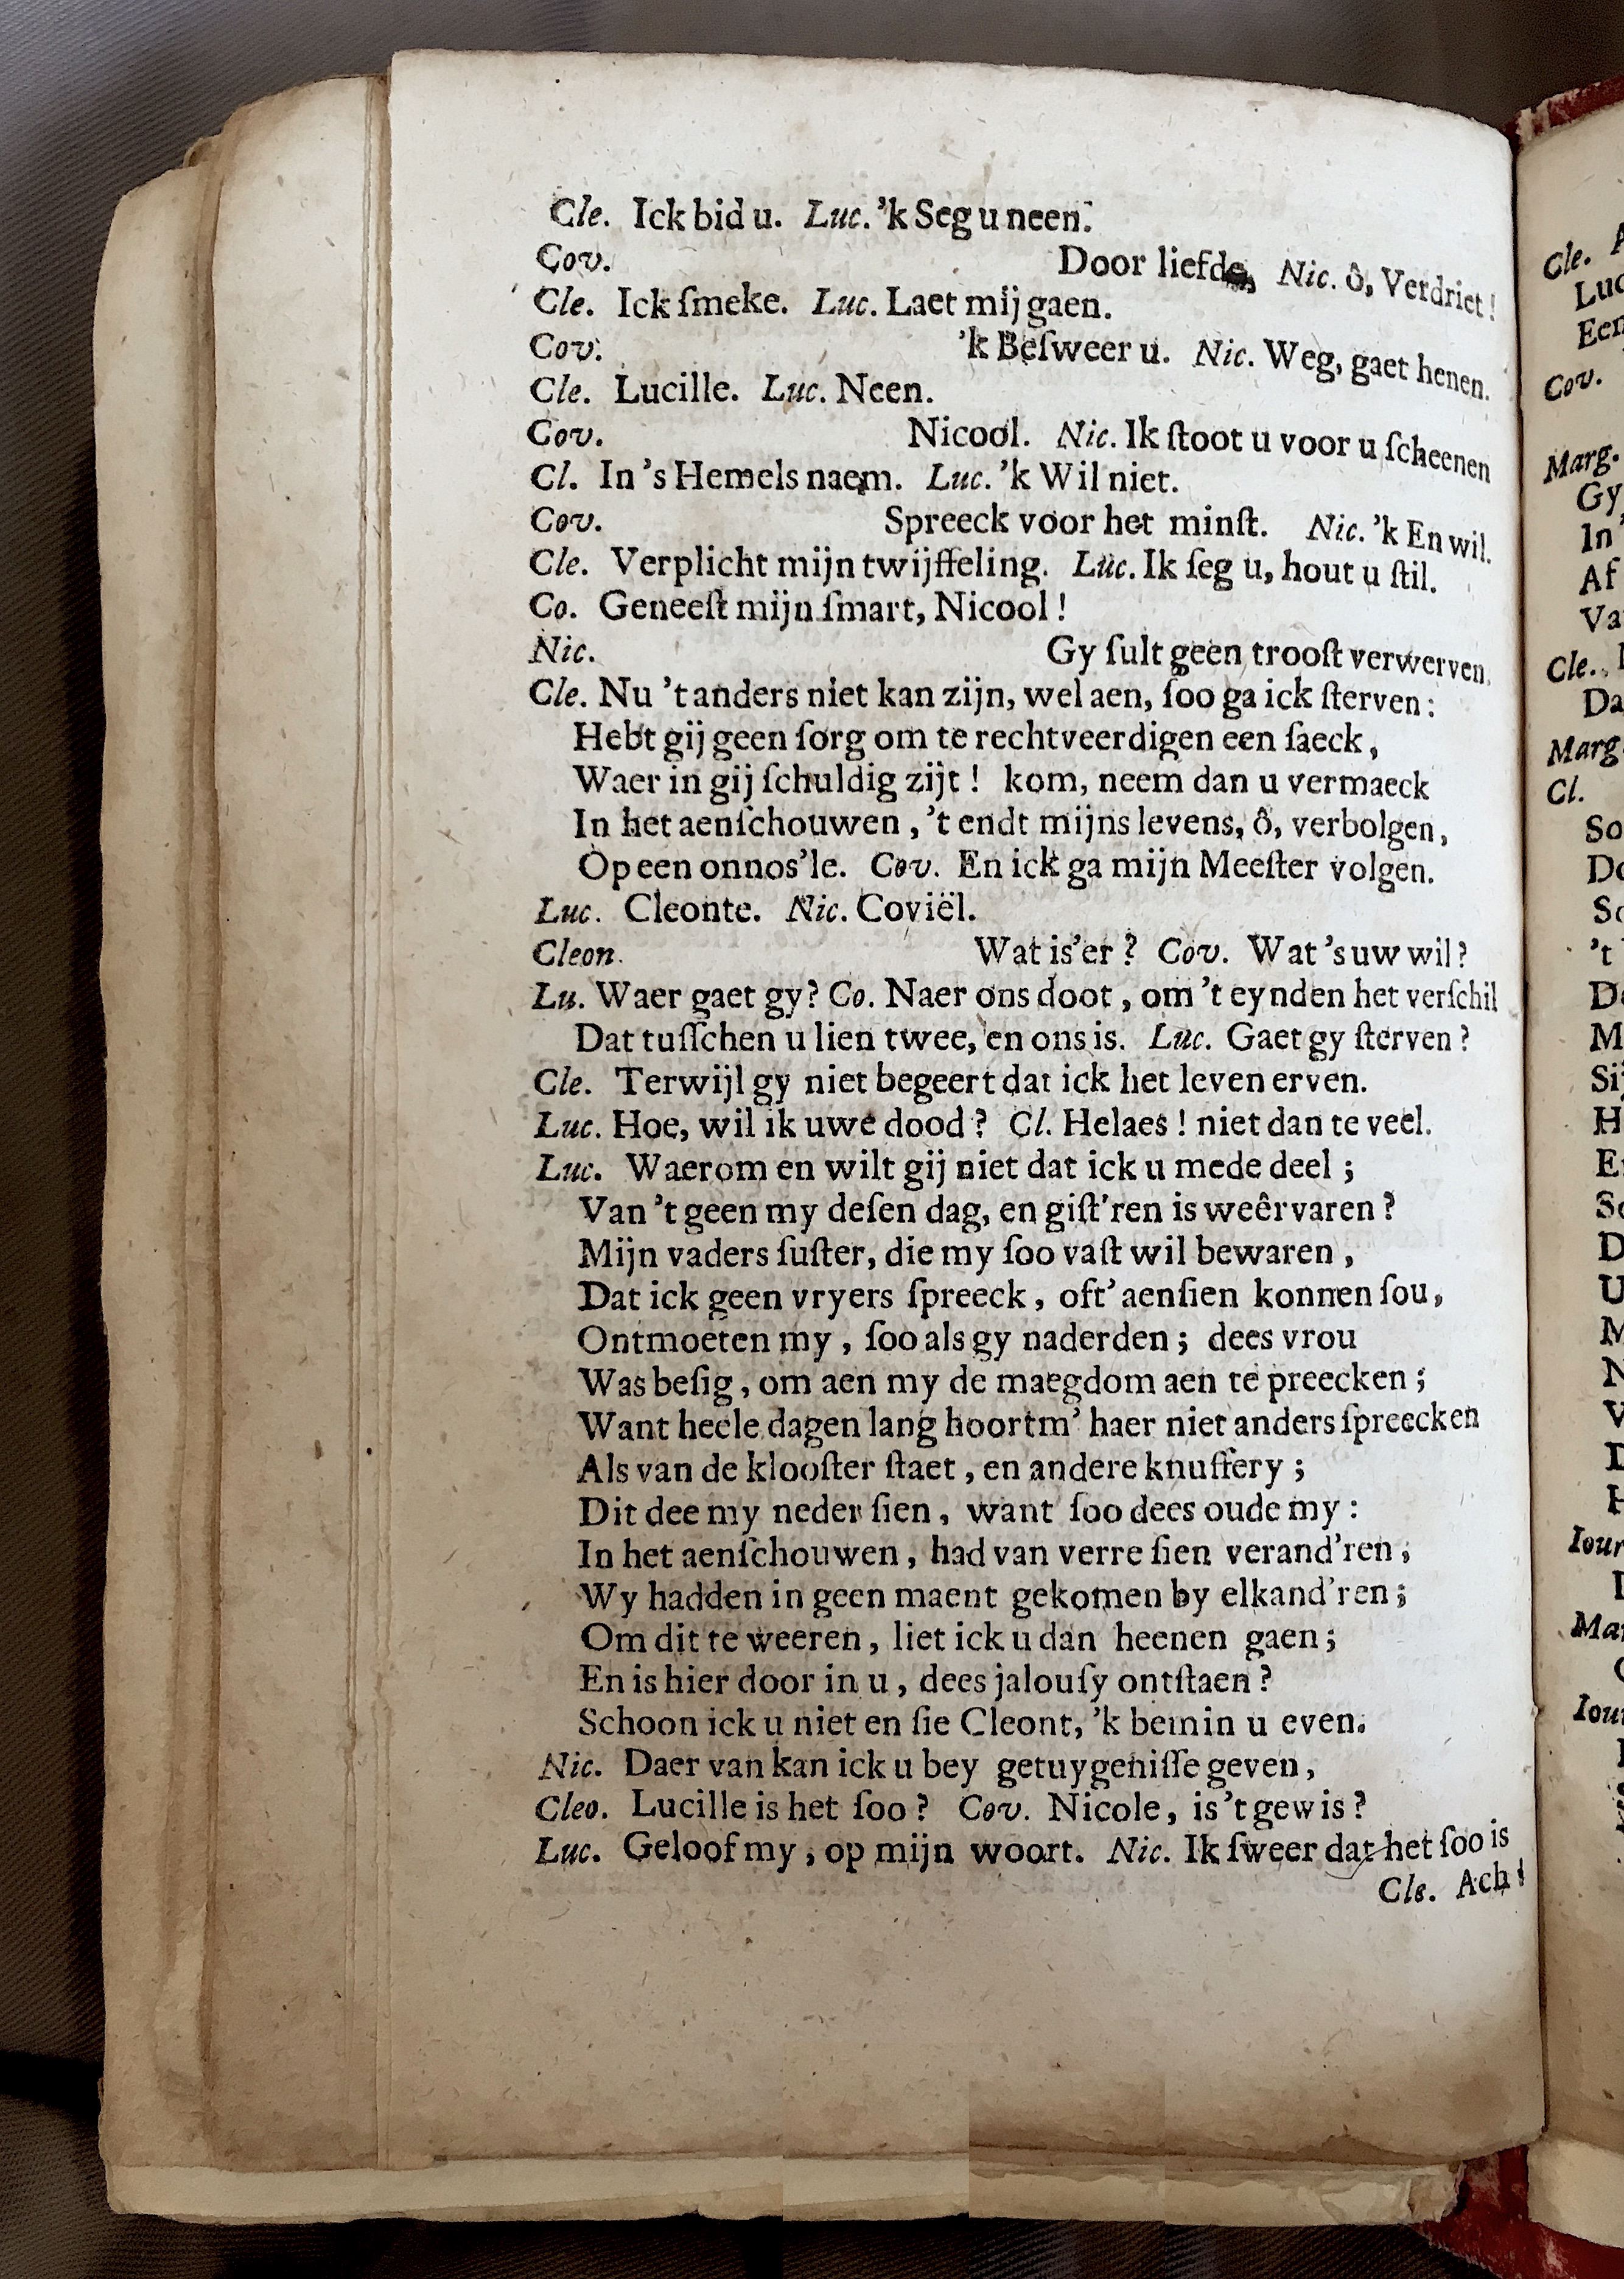 Cle. Ick bid u. Luc. 'k Seg u neen.
Cov. Door liefde, Nic. ô, Verdriet!
Cle. Ick ſmeke. Luc. Laet mij gaen.
Cov. 'k Beſweer u. Nic. Weg, gaet henen.
Cle. Lucille. Luc. Neen.
Cov. Nicool. Nic. Ik ſtoot u voor u ſcheenen
Cl. In 's Hemels naem. Luc. 'k Wil niet.
Cov. Spreeck voor het minſt. Nic. 'k En wil.
Cle. Verplicht mijn twijffeling. Luc. Ik ſeg u, hout u ſtil.
Co. Geneeſt mijn ſmart, Nicool!
Nic. Gy ſult geen trooſt verwerven.
Cle. Nu 't anders niet kan zijn, wel aen, ſoo ga ick ſterven:
Hebt gij geen ſorg om te rechtveerdigen een ſaeck,
Waer in gij ſchuldig zijt! kom, neem dan u vermaeck
In het aenſchouwen, 't endt mijns levens, ô, verbolgen,
Op een onnos'le. Cov. En ick ga mijn Meeſter volgen.
Luc. Cleonte. Nic. Coviël.
Cleon. Wat is'er? Cov. Wat 's uw wil?
Lu. Waer gaet gy? Co. Naer ons doot, om 't eynden het verſchil
Dat tuſſchen u lien twee, en ons is. Luc. Gaet gy ſterven?
Cle. Terwijl gy niet begeert dat ick het leven erven.
Luc. Hoe, wil ik uwe dood? Cl. Helaes! niet dan te veel.
Luc. Waerom en wilt gij niet dat ick u mede deel;
Van 't geen my deſen dag, en giſt'ren is weêrvaren?
Mijn vaders ſuſter, die my ſoo vaſt wil bewaren,
Dat ick geen vryers ſpreeck, oft' aenſien konnen ſou,
Ontmoeten my, ſoo als gy naderden; dees vrou
Was beſig, om aen my de maegdom aen te preecken;
Want heele dagen lang hoortm' haer niet anders ſpreecken
Als van de klooſter ſtaet, en andere knuffery;
Dit dee my neder ſien, want ſoo dees oude my:
In het aenſchouwen, had van verre ſien verand'ren,
Wy hadden in geen maent gekomen by elkand'ren;
Om dit te weeren, liet ick u dan heenen gaen;
En is hier door in u, dees jalouſy ontſtaen?
Schoon ick u niet en ſie Cleont, 'k bemin u even.
Nic. Daer van kan ick u bey getuygeniſſe geven,
Cleo. Lucille is het ſoo? Cov. Nicole, is 't gewis?
Luc. Geloof my, op mijn woort. Nic. Ik ſweer dat het ſoo is
Cle. Ach!
Cle.
Luc
Een
Cov.
Marg.
Gy
In
Af
Va
Cle.
Da
Marg.
Cl.
So
Do
So
't
De
M
Sij
H
En
So
D
U
M
N
V
D
H
Iour
Mar
Iou